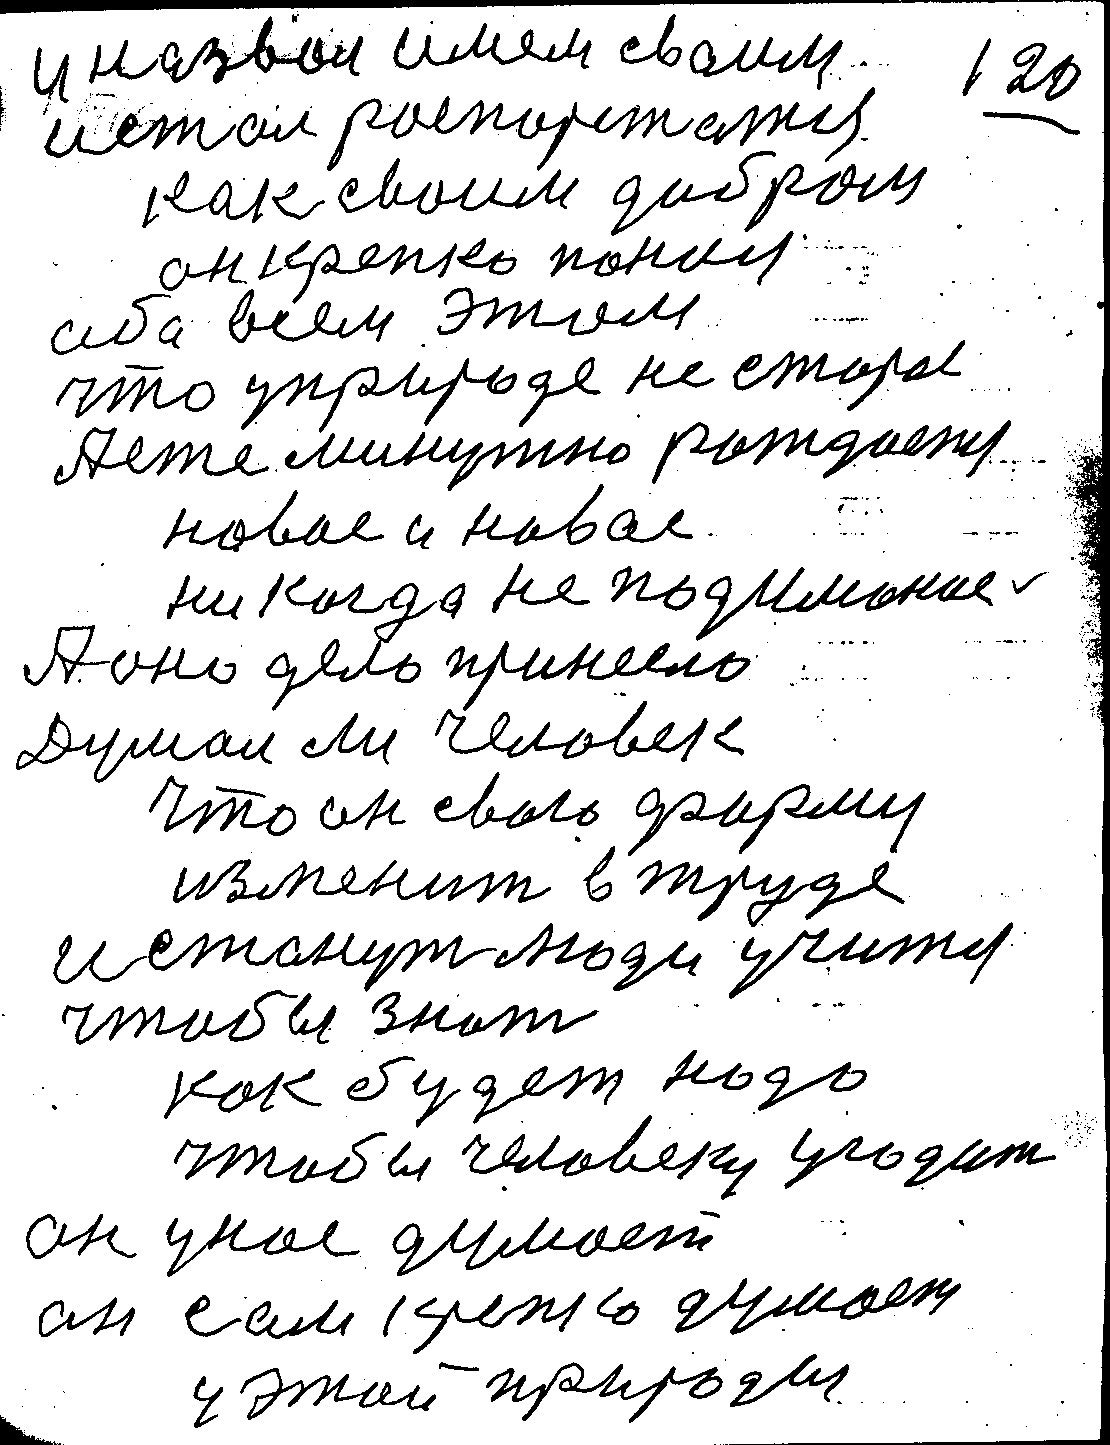 и назвал имем своим
120
и стал роспоряжатся
как своим добром
он крепко понял
аба всем этом
что у природе не старое
А еже минутно рождается
новое и новое
никогда не подимоное
А оно дело принесло
Думал ли человек
что он свою форму
изменит в труде
и станут люди учится
чтобы знат
как будет надо
чтобы человеку угодит
он у нас думает
он сам крепко думает
у этой природы